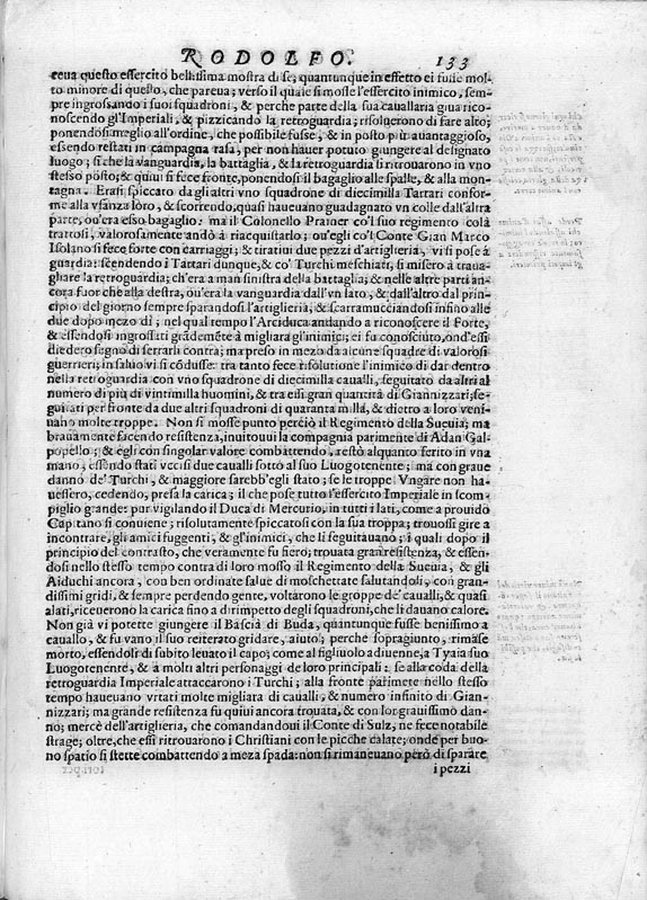 RODOLFO. 133
ceua questo essercito bellissima mostra di se; quantunque in effetto ei fusse mol-
to minore di questo, che pareua; verso il quale si mosse l'essercito inimico, sem-
pre ingrossando i suoi squadroni, & perche parte della sua cauallaria giua rico-
noscendo gl'Imperiali, & pizzicando la retroguardia; risoluerono di fare alto;
ponendosi meglio all'ordine, che possibile fusse, & in posto più auantaggioso,
essendo restati in campagna rasa, per non hauer potuto giungere al designato
luogo; si che la vanguardia, la battaglia, & la retroguardia si ritrouarono in vno
stesso posto; & quiui si fece fronte, ponendosi il bagaglio alle spalle, & alla mon-
tagna. Erasi spiccato dagli altri vno squadrone di diecimilla Tartari confor-
me alla vsanza loro, & scorrendo, quasi haueuano guadagnato vn colle dall'altra
parte, ou'era esso bagaglio: ma il Colonello Prainer co'l suo regimento colà
trattosi, valorosamente andò à riacquistarlo; ou'egli co'l Conte Gian Marco
Isolano si fece forte con carriaggi; & tirati ui due pezzi d'artiglieria, vi si pose à
guardia: scendendo i Tattari dunque, & co' Turchi meschiati, si misero à traua-
gliare la retroguardia; ch'era a man sinistra della battaglia; & nelle altre parti an-
cora fuor che alla destra, ou'era la vanguardia dall'vn lato, & dall'altro dal prin-
cipio del giorno sempre sparandosi l'artiglieria; & scarramucciandosi infino alle
due dopo mezo dì; nel qual tempo l'Arciduca andando a riconoscere il Forte,
& essendosi ingrossati grādemēte à migliara gl'inimici; ei fu conosciuto, ond'essi
diedero segno di serrarli contra; ma preso in mezo da alcune squadre di valorosi
guerrieri; in saluo vi si cōdusse: tra tanto fece risolutione l'inimico di dar dentro
nella retroguardia con vno squadrone di diecimilla caualli, seguitato da altri al
numero di più di vintimilla huomini, & tra essi gran quantità di Giannizzari; se-
guitati per fronte da due altri squadroni di quaranta milla, & dietro a loro veni-
uano molte troppe. Non si mosse punto perciò il Regimento della Sueuia; ma
brauamente facendo resistenza, inuitouui la compagnia parimente di Adan Gal-
popello; & egli con singolar valore combattendo, restò alquanto ferito in vna
mano, essendo stati vccisi due caualli sotto al suo Luogotenente; ma con graue
danno de' Turchi, & maggiore sarebb'egli stato; se le troppe Vngare non ha-
uessero, cedendo, presa la carica; il che pose tutto l'essercito Imperiale in scom-
piglio grande: pur vigilando il Duca di Mercurio, in tutti i lati, come a prouido
Capitano si conuiene; risolutamente spiccatosi con la sua troppa; trouossi gire a
incontrare, gli amici fuggenti, & gl'inimici, che li seguitauano; i quali dopo il
principio del contrasto, che veramente fu fiero; trouata gran resistenza, & essen-
dosi nello stesso tempo contra di loro mosso il Regimento della Sueuia, & gli
Aiduchi ancora, con ben ordinate salue di moschettate salutandoli, con gran-
dissimi gridi, & sempre perdendo gente, voltarono le groppe de' caualli, & quasi
alati, riceuerono la carica fino a dirimpetto degli squadroni, che li dauano calore.
Non già vi potette giungere il Bascià di Buda, quantunque fusse benissimo a
cauallo, & fu vano il suo reiterato gridare, aiuto; perche sopragiunto, rimase
morto, essendoli di subito leuato il capo; come al figliuolo adiuenne, a Tyaia suo
Luogotenente, & à molti altri personaggi de loro principali: se alla coda della
retroguardia Imperiale attaccarono i Turchi; alla fronte parimēte nello stesso
tempo haueuano vrtati molte migliara di caualli, & numero infinito di Gian-
nizzari; ma grande resistenza fu quiui ancora trouata, & con lor grauissimo dan-
no; mercè dell'artiglieria, che comandandoui il Conte di Sulz, ne fece notabile
strage; oltre, che essi ritrouarono i Christiani con le picche calate; onde per buo-
no spatio si stette combattendo a meza spada: non si rimaneuano però di sparare
i pezzi